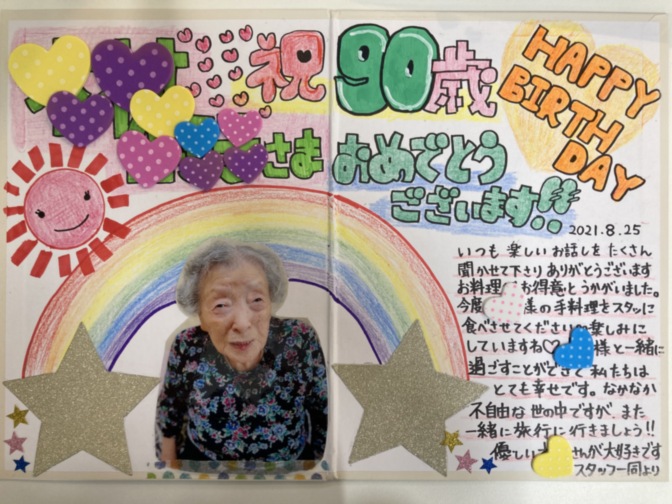 祝 90歳
さま おめでとう
ございます!!
HAPPY
BIRTH
DAY
2021.8.25
いつも 楽しい お話しを たくさん
聞かせて下さり ありがとうございます
お料理 お得意と うかがいました。
今度 様の手料理をスタッフに
食べさせてください 楽しみに
していますね♡ 様と一緒に
過ごすことができて 私たちは
とても 幸せです。なかなか
不自由な 世の中ですが、また
一緒に 旅行に 行きましょう!!
優しい さんが大好きです
スタッフ一同より